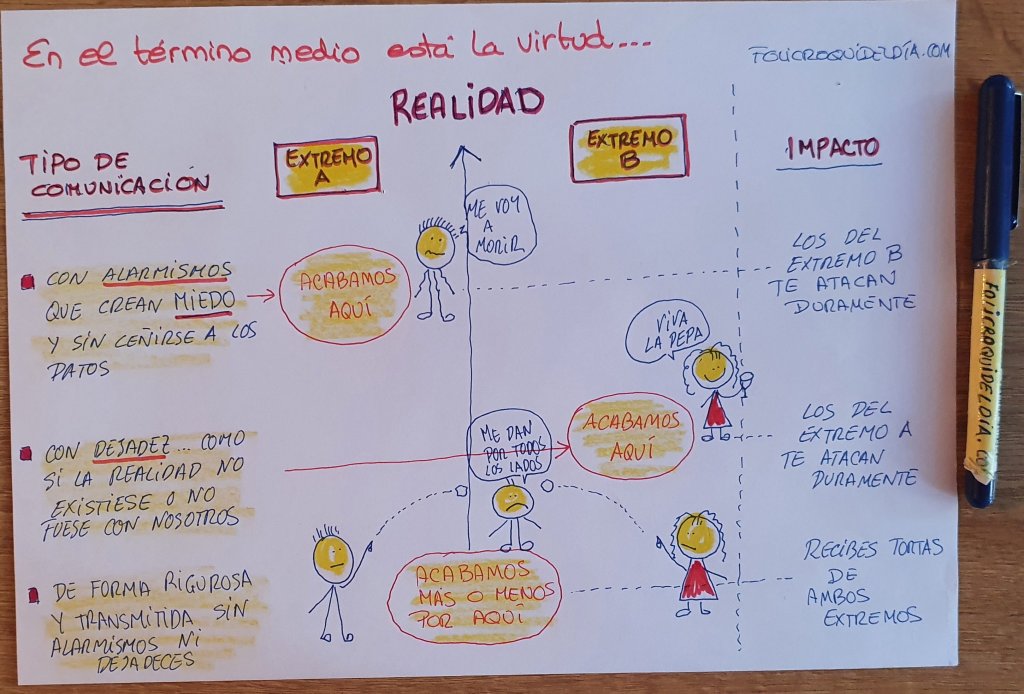 En el término medio está la virtud...
FOLICROQUIDELDÍA.COM
REALIDAD
TIPO DE
COMUNICACIÓN
EXTREMO
A
EXTREMO
B
IMPACTO
CON ALARMISMOS
QUE CREAN MIEDO
Y SIN CEÑIRSE A LOS
DATOS
ACABAMOS
AQUÍ
ME VOY
A
MORIR
LOS DEL
EXTREMO B
TE ATACAN
DURAMENTE
VIVA
LA PEPA
CON DEJADEZ... COMO
SI LA REALIDAD NO
EXISTIESE O NO
FUESE CON NOSOTROS
ME DAN
POR TODOS
LOS LADOS
ACABAMOS
AQUÍ
LOS DEL
EXTREMO A
TE ATACAN
DURAMENTE
DE FORMA RIGUROSA
Y TRANSMITIDA SIN
ALARMISMOS NI
DEJADECES
ACABAMOS
MÁS O MENOS
POR AQUÍ
RECIBES TORTAS
DE
AMBOS
EXTREMOS
FOLICROQUIDELDÍA.CO